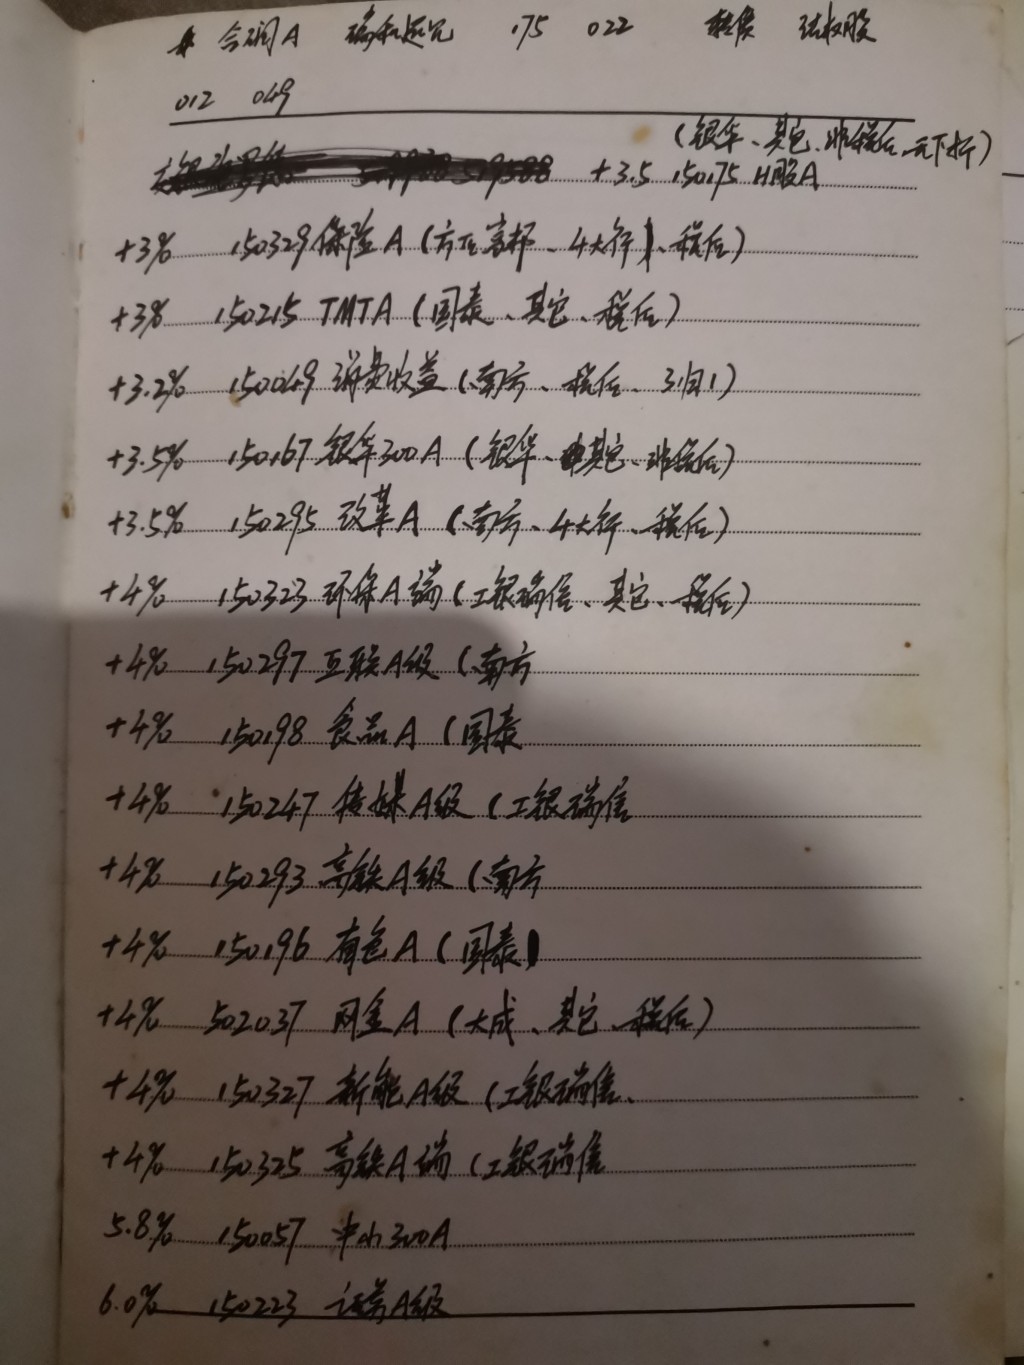 合润A 瑞和远见 175 022 转债 法权股
012 049
(银华、其它、非税后、无下折)
+3.5 150175 H股A
+3% 150329 保险A (方正富邦、4大行、税后)
+3% 150215 TMTA (国泰、其它、税后)
+3.2% 150049 消费收益 (南方、税后、3月1)
+3.5% 150167 银华300A (银华、其它、非税后)
+3.5% 150295 改革A (南方、4大行、税后)
+4% 150323 环保A端 (工银瑞信、其它、税后)
+4% 150297 互联A级 (南方
+4% 150198 食品A (国泰
+4% 150247 传媒A级 (工银瑞信
+4% 150293 高铁A级 (南方
+4% 150196 有色A (国泰)
+4% 502037 网金A (大成、其它、税后)
+4% 150327 新能A级 (工银瑞信、
+4% 150325 高铁A端 (工银瑞信
5.8% 150057 中小300A
6.0% 150223 证券A级